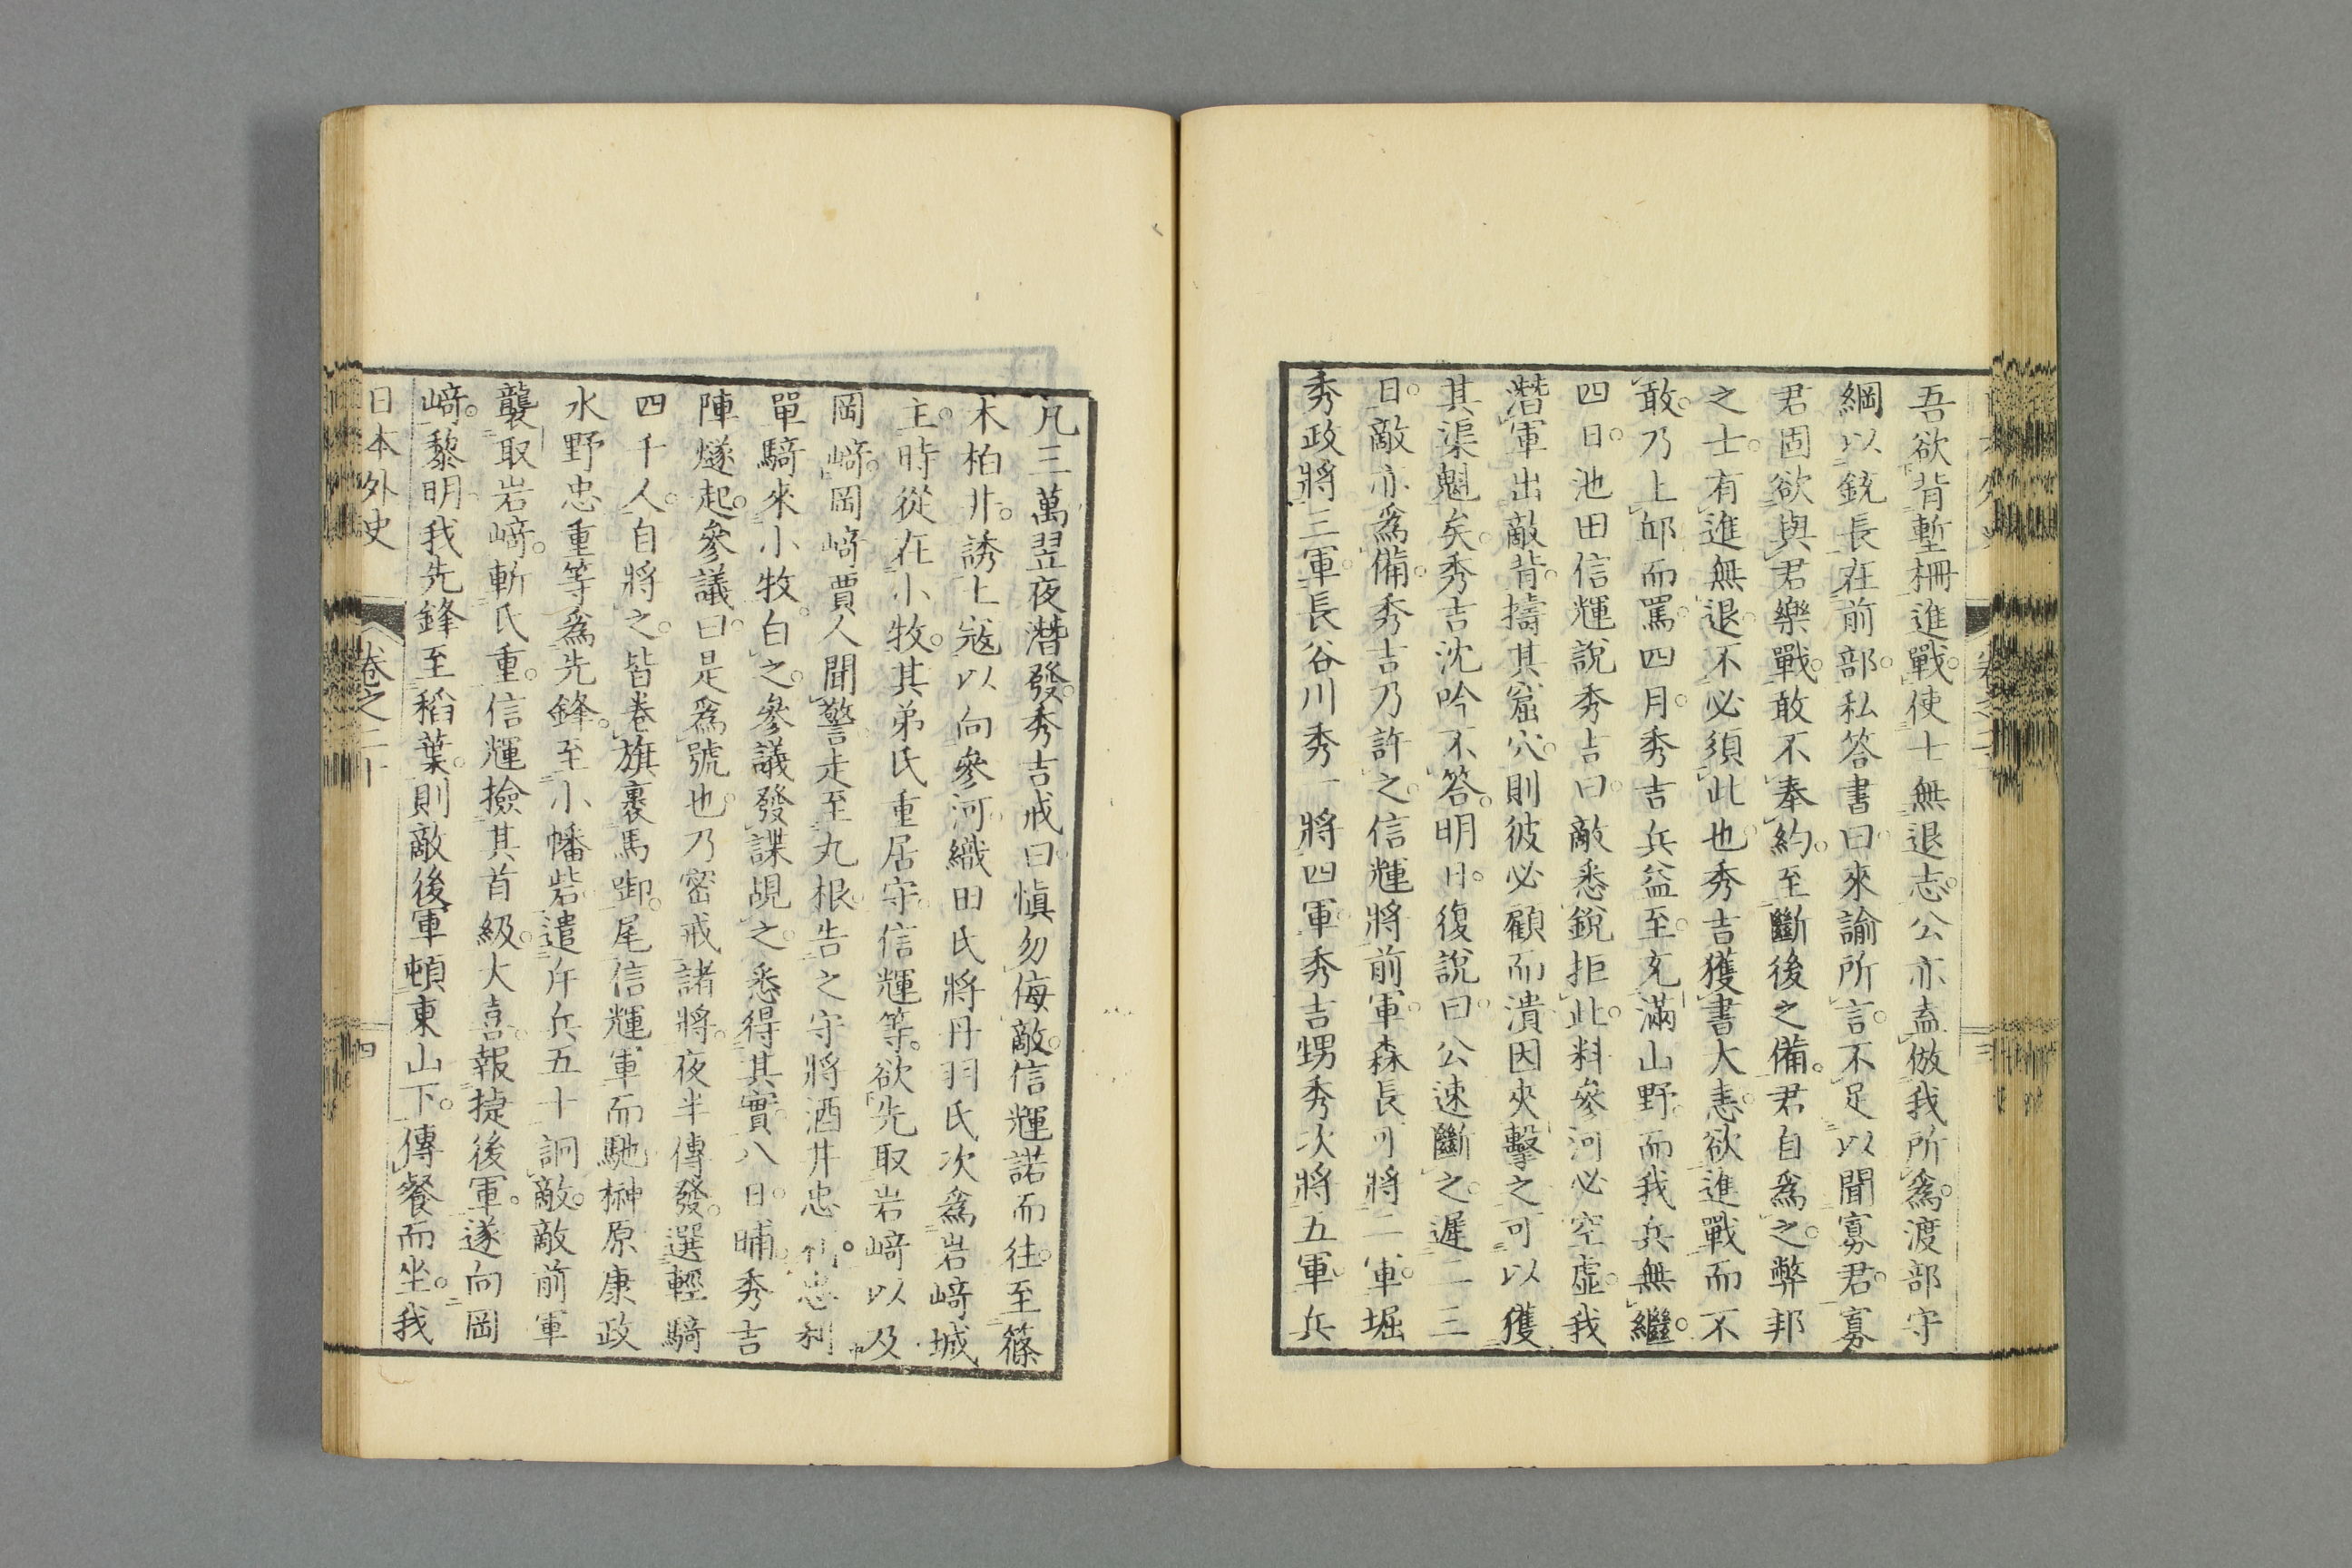 吾欲背塹柵進戰。使士無退志。公亦盍倣我所爲。渡部守
綱以銃長在前部。私答書曰。來諭所言。不足以聞寡君。寡
君固欲與君樂戰。敢不奉約。至斷後之備。君自爲之。弊邦
之士。有進無退。不必須此也。秀吉獲書大恚。欲進戰而不
敢。乃上邱而罵。四月。秀吉兵益至。充滿山野。而我兵無繼。
四日。池田信輝說秀吉曰。敵悉銳拒此。料參河必空虛。我
潛軍出敵背。擣其窟穴。則彼必顧而潰。因夾擊之。可以獲
其渠魁矣。秀吉沈吟不答。明日。復說曰。公速斷之。遲二三
日。敵亦爲備。秀吉乃許之。信輝將前軍。森長可將二軍。堀
秀政將三軍。長谷川秀一將四軍。秀吉甥秀次將五軍。兵
凡三萬。翌夜潛發。秀吉戒曰。愼勿侮敵。信輝諾而往。至篠
木柏井。誘土寇以向參河。織田氏將丹羽氏次爲岩﨑城
主。時從在小牧。其弟氏重居守。信輝等。欲先取岩﨑以及
岡﨑。岡﨑賈人聞警。走至丸根。告之守將酒井忠利。忠利
單騎來小牧。白之。參議發諜覘之。悉得其實。八日。日晡。秀吉
陣燧起。參議曰。是爲號也。乃密戒諸將。夜半傳發。選輕騎
四千人。自將之。皆卷旗裹馬御。尾信輝軍而馳。榊原康政
水野忠重等爲先鋒。至小幡砦。遣斥兵五十詗敵。敵前軍
襲取岩﨑。斬氏重。信輝撿其首級。大喜。報捷後軍。遂向岡
﨑。黎明。我先鋒至稻葉。則敵後軍頓東山下。傳餐而坐。我
日本外史 卷之二十 四